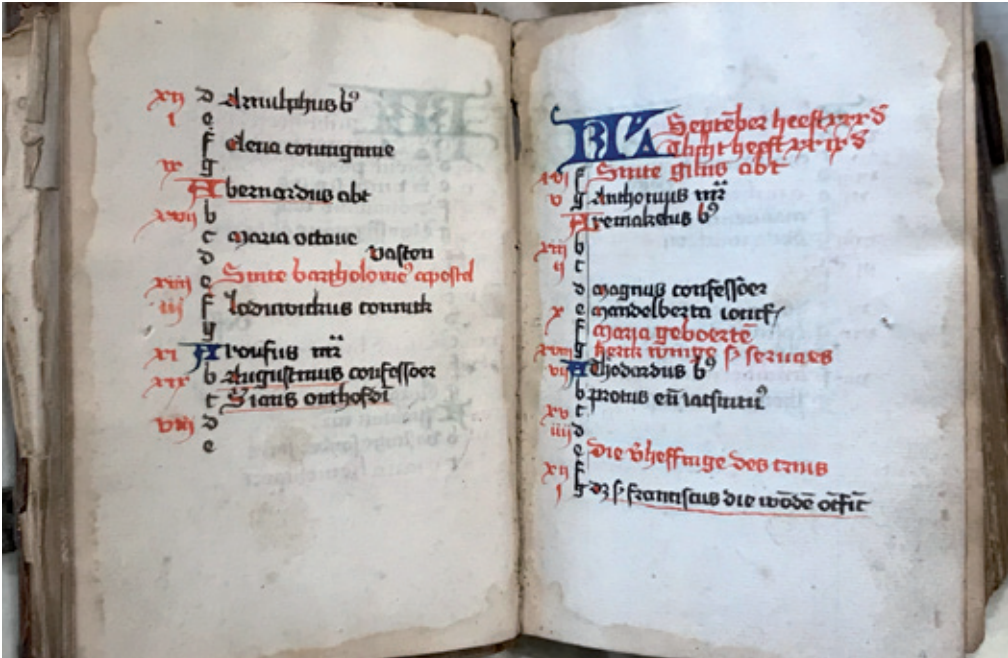 xij d Arnulphus bꝰ
i e
f elena coningynne
ix g
A bernardus abt
xvij b
c maria octaue
d vasten
xiiij e Sinte bartholomeꝰ apostel
iij f lodiuuickus connick
g
xi A roufus mr̄
xix b Augustinus confessoer
c S ians onthofdī
viij d
e
KL Septēber heeft xxx d
xvi f Sinte gilius abt
v g Anthonius mr̄
A remaclus bꝰ
xiij b
ij c
d magnus confessoer
x e mandelberta ioncf
f maria geboertē
xviij g kerck s seruaes
vij A Thodardus bꝰ
b protus eñ iacinctꝰ
xv c
iiij d
e die v̄heffinge des cruis
xij f
i g s franciscus die wōdē